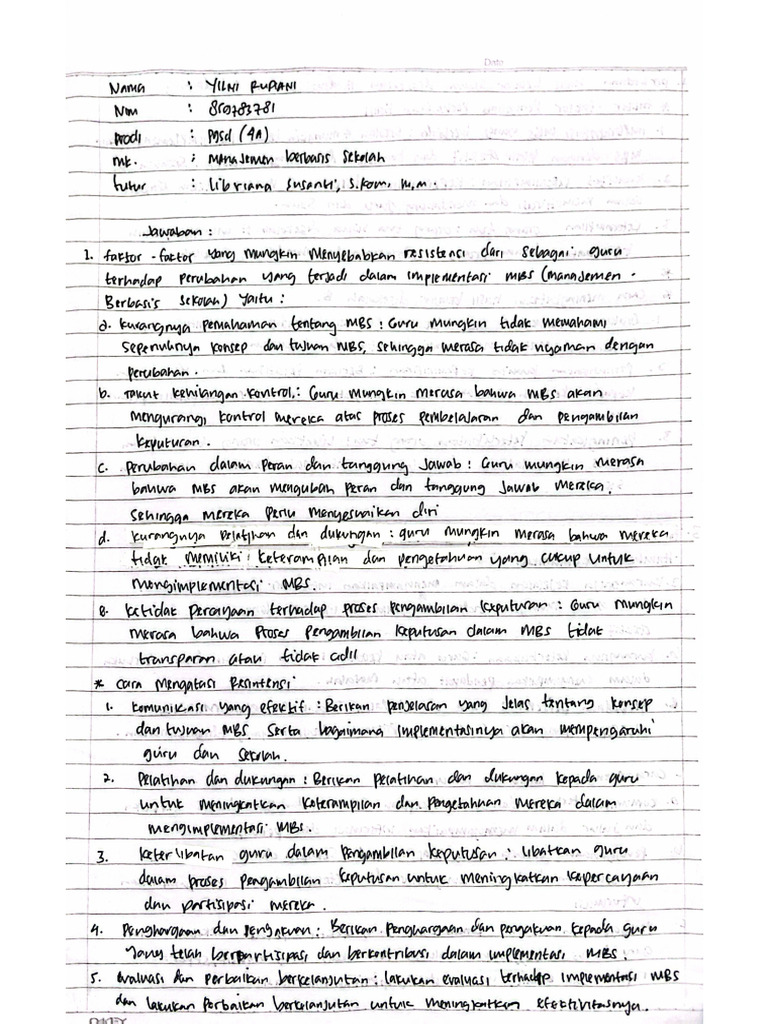 Date
Nama : YILNI RUPIANI
Nim : 859783781
prodi : pgsd (4A)
mk. : manajemen berbasis sekolah
tutur : Libriana Susanti, S.kom, m.m.
Jawaban :
1. faktor-faktor yang mungkin menyebabkan resistensi dari sebagai guru
terhadap perubahan yang terjadi dalam implementasi MBS (manajemen
Berbasis sekolah) yaitu :
a. kurangnya pemahaman tentang MBS : Guru mungkin tidak memahami
sepenuhnya konsep dan tujuan MBS, sehingga merasa tidak nyaman dengan
perubahan.
b. Takut kehilangan kontrol : Guru mungkin merasa bahwa MBS akan
mengurangi kontrol mereka atas proses pembelajaran dan pengambilan
keputuran.
c. perubahan dalam peran dan tanggung jawab : Guru mungkin merasa
bahwa MBS akan mengubah peran dan tanggung jawab mereka,
sehingga mereka perlu menyesuaikan diri
d. kurangnya pelatihan dan dukungan : guru mungkin merasa bahwa mereka
tidak memiliki keterampilan dan pengetahuan yang cukup untuk
mengimplementasi MBS.
e. ketidak percayaan terhadap proses pengambilan keputuran : Guru mungkin
merasa bahwa proses pengambilan keputusan dalam MBS tidak
transparan atau tidak adil
* cara mengatasi Resintensi
1. komunikasi yang efektif : Berikan penjelasan yang jelas tentang konsep
dan tujuan MBS, serta bagaimana implementasinya akan mempengaruhi
guru dan sekolah.
2. pelatihan dan dukungan : Berikan pelatihan dan dukungan kepada guru
untuk meningkatkan keterampilan dan pengetahuan mereka dalam
mengimplementasi MBS.
3. keterlibatan guru dalam pengambilan keputusan : libatkan guru
dalam proses pengambilan keputusan untuk meningkatkan kepercayaan
dan partisipasi mereka.
4. Penghargaan dan pengakuan : Berikan penghargaan dan pengakuan kepada guru
yang telah berpartisipasi dan berkontribusi dalam implementasi MBS.
5. evaluasi dan perbaikan berkelanjutan : lakukan evaluasi terhadap implementasi MBS
dan lakukan perbaikan berkelanjutan untuk meningkatkan efektivitasnya.